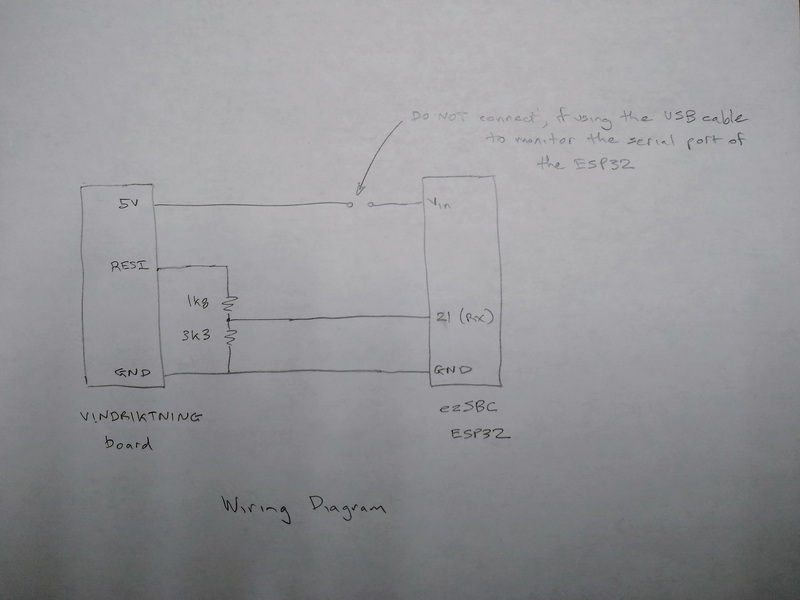 DO NOT connect, if using the USB cable
to monitor the serial port of
the ESP32
5V
Vin
RESI
1k8
21 (Rx)
3k3
GND
GND
VINDRIKTNING
board
ezSBC
ESP32
Wiring Diagram